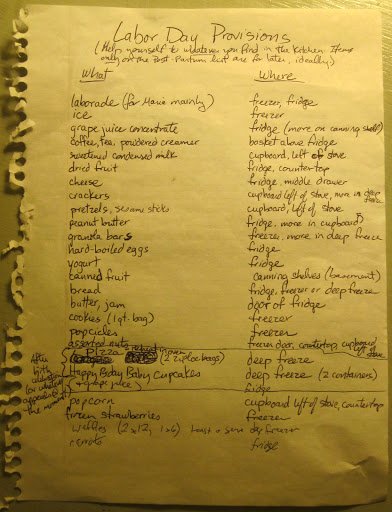 Labor Day Provisions
(Help yourself to whatever you find in the kitchen. Items
only on the Post-Partum list are for later, ideally)
What Where
laborade (for mainly) freezer, fridge
ice freezer
grape juice concentrate fridge (more on canning shelf)
coffee, tea, powdered creamer basket above fridge
sweetened condensed milk cupboard, left of stove
dried fruit fridge, countertop
cheese fridge, middle drawer
crackers cupboard left of stove, more in deep freeze
pretzels, sesame sticks cupboard, left of stove
peanut butter fridge, more in cupboard
granola bars freezer, more in deep freeze
hard-boiled eggs fridge
yogurt fridge
canned fruit canning shelves (basement)
bread fridge, freezer or deep freeze
butter, jam door of fridge
cookies (1 qt. bag) freezer
popcicles freezer
assorted nuts freezer door, countertop, cupboard left of stove
Pizza (2 ziploc bags) deep freeze
Happy Birthday Baby Cupcakes deep freeze (2 containers)
(+ grape juice) fridge
After birth celebration (or whenever appropriate in the moment)
popcorn cupboard left of stove, countertop
frozen strawberries freezer
waffles (2x12, 1x6) deep freezer
carrots fridge